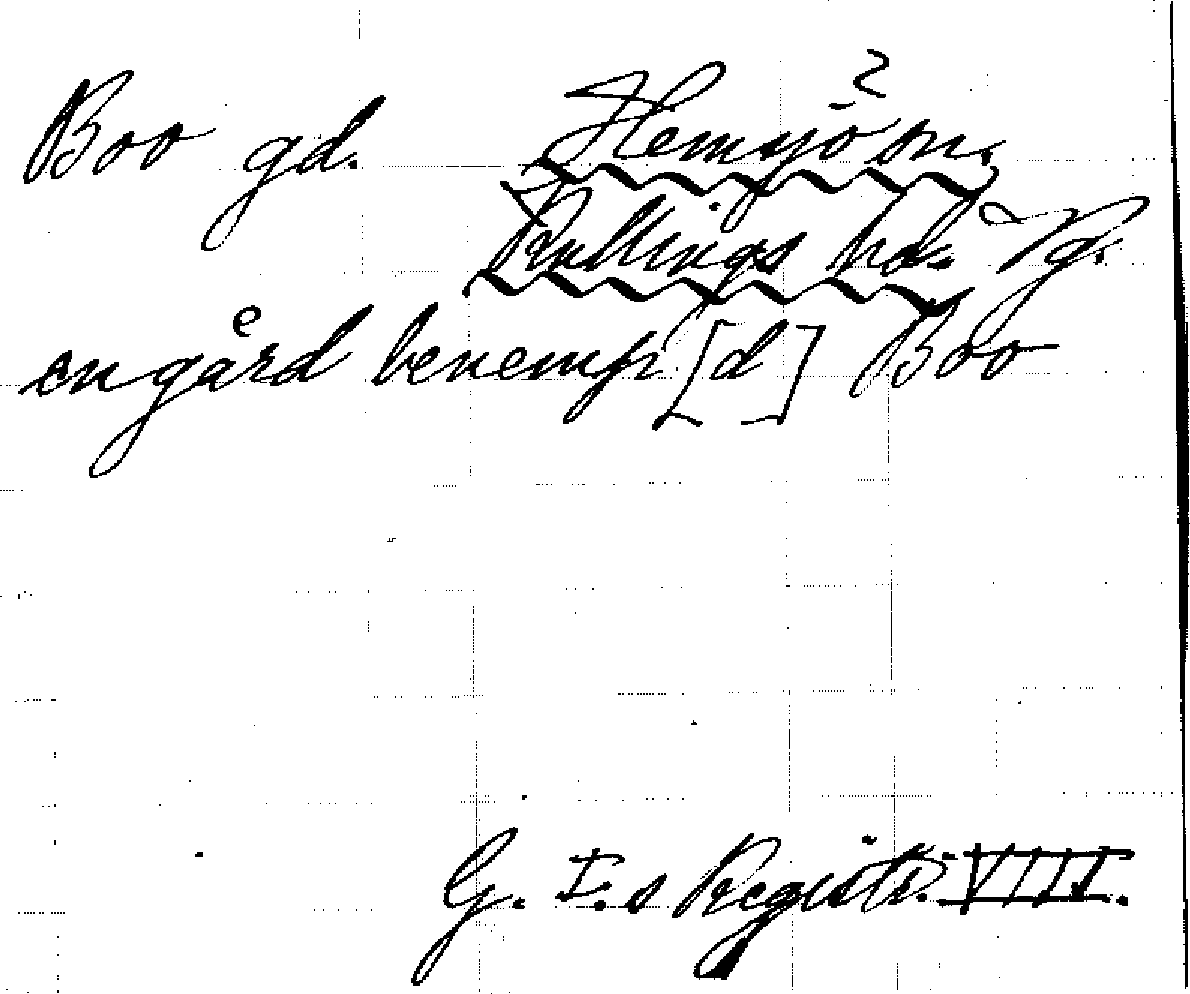 Boo gd. Hemsjö sn. ?
Kullings hd. Vg.
en gård benemp[d] Boo
G. I.s Registr. VIII.